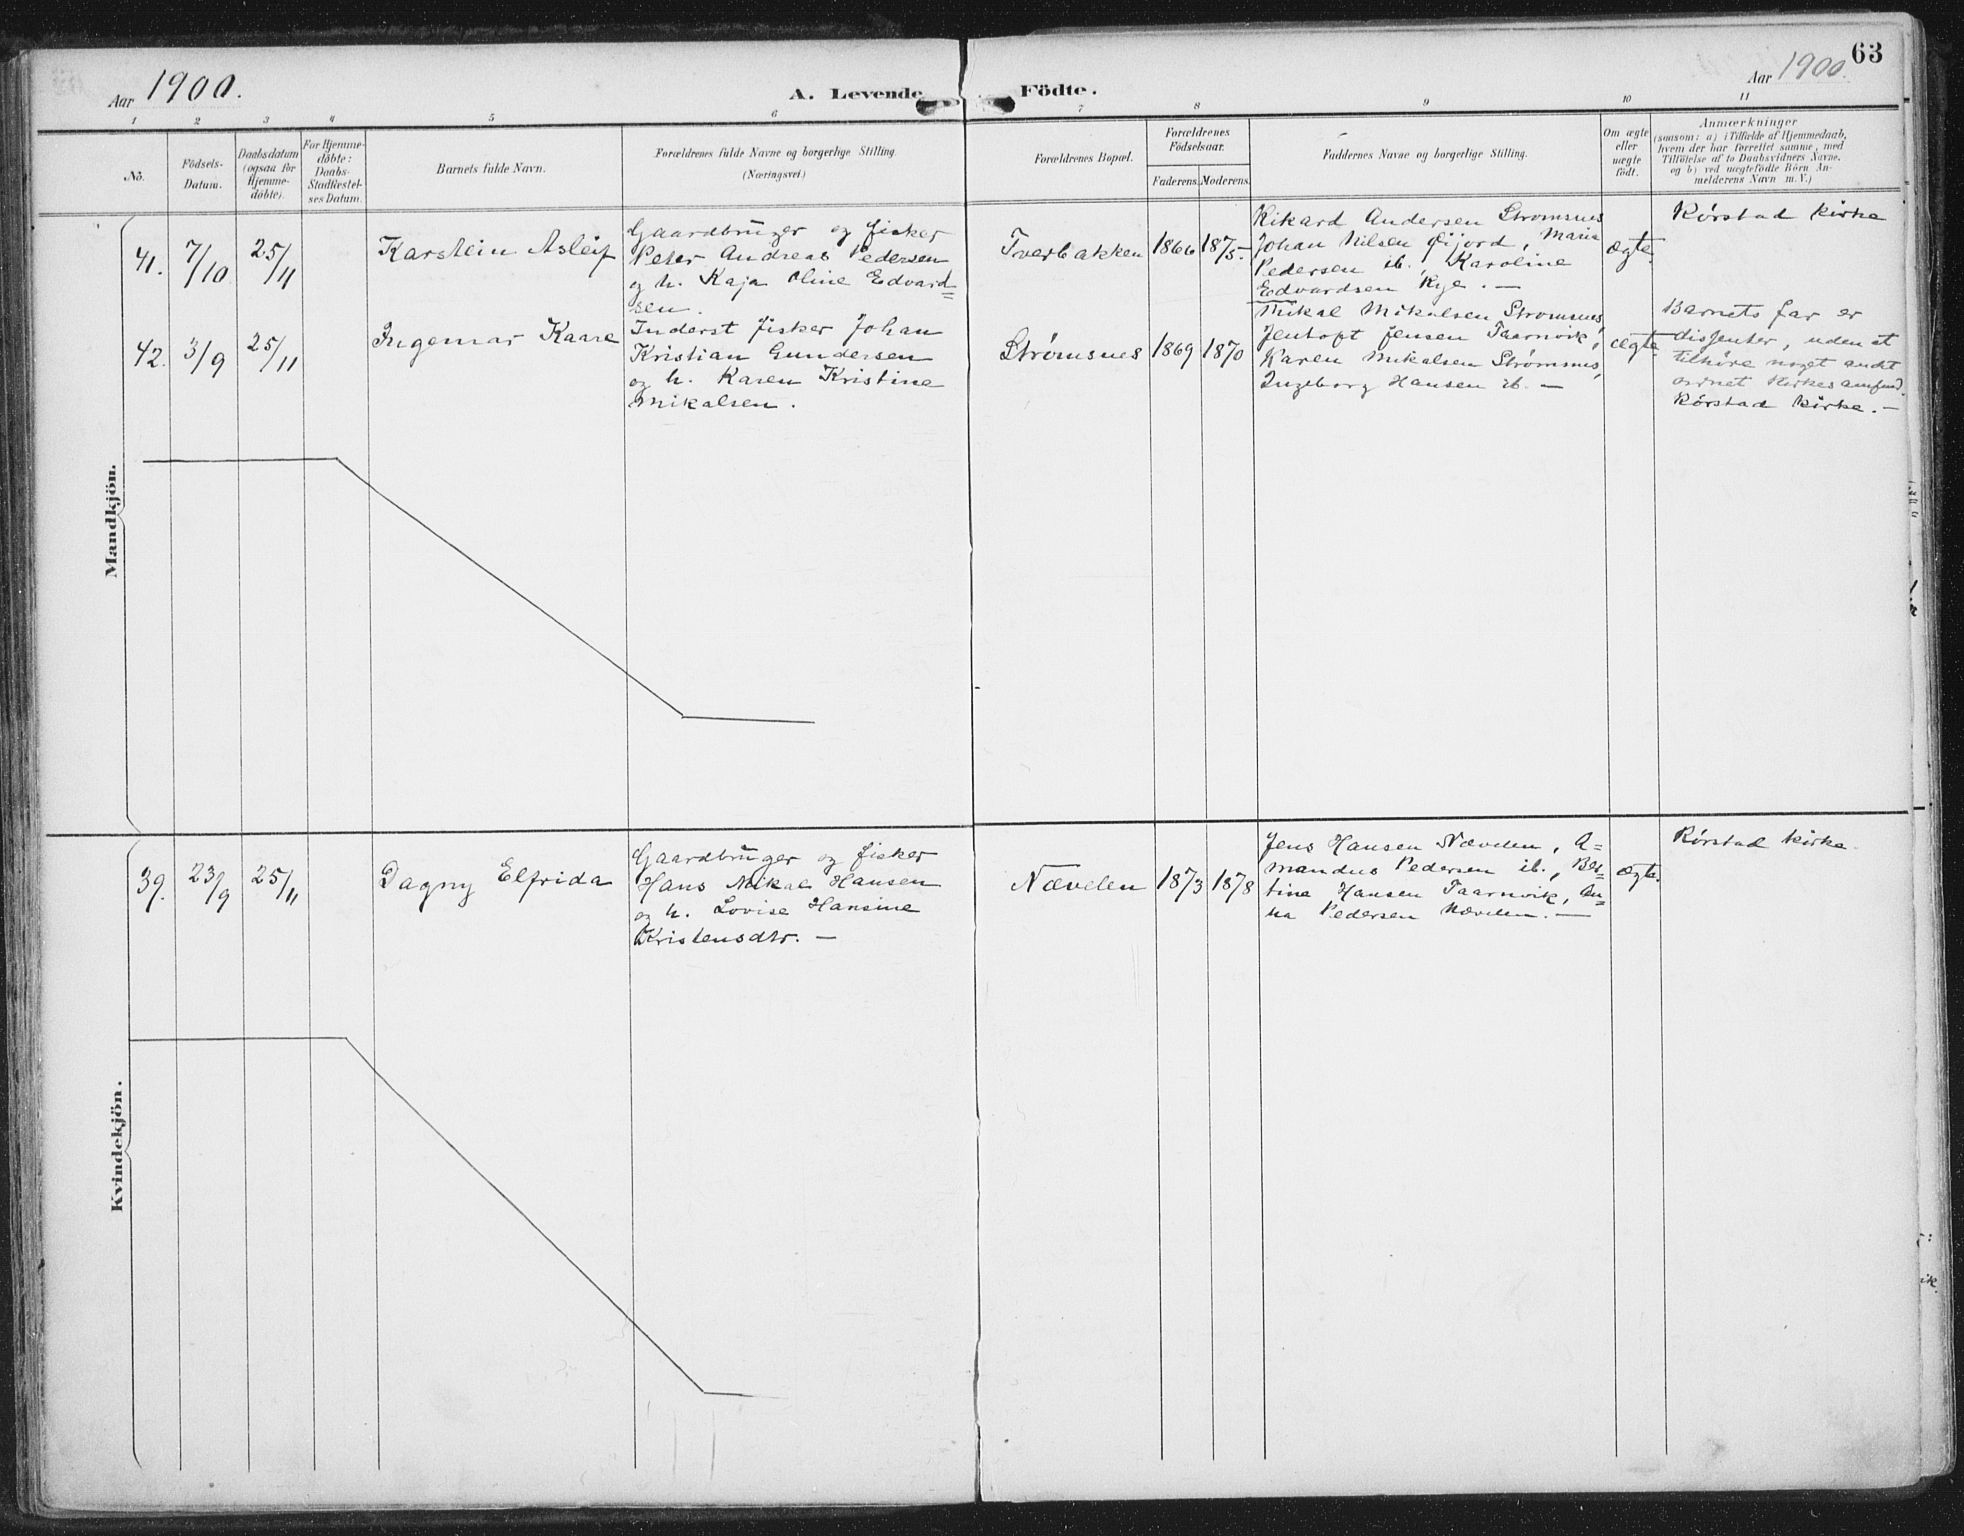 Aar 1900.
A. Levende Födte.
Aar 1900.
63
1 2 3 4 5 6 7 8 9 10 11
No.
Födsels-
Datum.
Daabsdatum
(ogsaa for
Hjemme-
döbte).
For Hjemme-
döbte:
Daabs-
Stadfæstel-
ses Datum.
Barnets fulde Navn.
Forældrenes fulde Navne og borgerlige Stilling.
(Næringsvei.)
Forældrenes Bopæl.
Forældrenes
Födselsaar.
Faderens. Moderens.
Faddernes Navne og borgerlige Stilling.
Om ægte
eller
uægte
födt.
Anmærkninger
(saasom: a) i Tilfælde af Hjemmedaab,
hvem der har forrettet samme, med
Tilföielse af to Daabsvidners Navne.
og b) ved uægtefödte Börn An-
melderens Navn m. V.)
Mandkjön.
41. 7/10 25/11 Karstein Asleif
Gaardbruger og fisker
Peter Andreas Pedersen
og h. Kaja Oline Edvard=
sen.
Tverbakken 1866 1875.
Rikard Andersen Strømsnes
Johan Nilsen Øijord, Marie
Pedersen ib., Karoline
Edvardsen Rye. —
ægte.
Rørstad kirke
42. 3/9 25/11 Ingemar Kaare
Inderst fisker Johan
Kristian Gundersen
og h. Karen Kristine
Mikalsen.
Strømsnes 1869 1870
Mikal Mikalsen Strømsnes,
Jentoft Jensen Taarnvik,
Karen Mikalsen Strømsnes,
Ingeborg Hansen ib. —
ægte.
Barnets far er
dissenter, uden at
tilhøre noget andet
ordnet kirkesamfund.
Rørstad kirke. —
Kvindekjön.
39. 23/9 25/11 Dagny Elfrida
Gaardbruger og fisker
Hans Mikal Hansen
og h. Lovise Hansine
Kristensdtr. —
Nævelen 1873 1878
Jens Hansen Nævelen, A=
mandus Pedersen ib., Ber=
tine Hansen Taarnvik, An=
na Pedersen Nævelen. —
ægte.
Rørstad kirke.